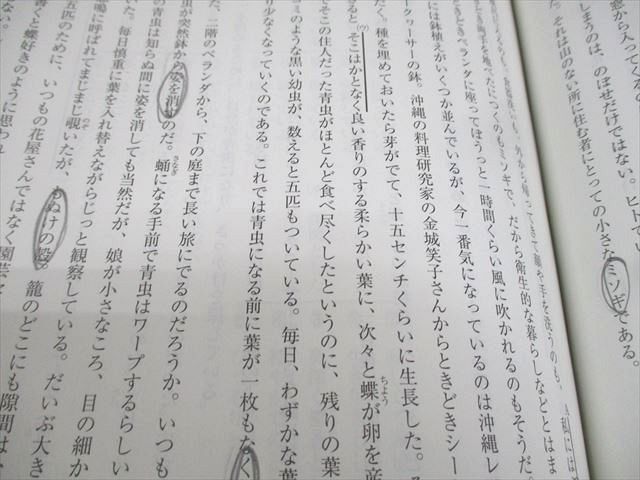 窓から入ってくる
しまうのは、のぼせだけではない。ヒ
た。それは山のない所に住む者にとっての小さなミソギである。
ときどきベランダに座ってぼうっと一時間くらい風に吹かれるのもそうだ。
には鉢植えがいくつか並んでいるが、今一番気になっているのは沖縄レ
ークワーサーの鉢。沖縄の料理研究家の金城笑子さんからときどきシー
だ。種を埋めておいたら芽がでて、十五センチくらいに生長した。
ると、そこはかとなく良い香りのする柔らかい葉に、次々と蝶が卵を産
でそこの住人だった青虫がほとんど食べ尽くしたというのに、残りの葉
ミのような黒い幼虫が、数えると五匹もついている。毎日、わずかな葉
り少なくなっていくのである。これでは青虫になる前に葉が一枚もなく
た、二階のベランダから、下の庭まで長い旅にでるのだろうか。いつも
虫が突然鉢から姿を消すのだ。蛹になる手前で青虫はワープするらしい
の青虫は知らぬ間に姿を消しても当然だが、娘が小さなころ、目の細か
いた。毎日慎重に葉を入れ替えながらじっと観察している。だいぶ大き
鳴に呼ばれてまじまじ覗いたが、もぬけの殻。籠のどこにも隙間は
五匹のために、いつもの花屋さんではなく園芸
書と蝶好きのように思われ